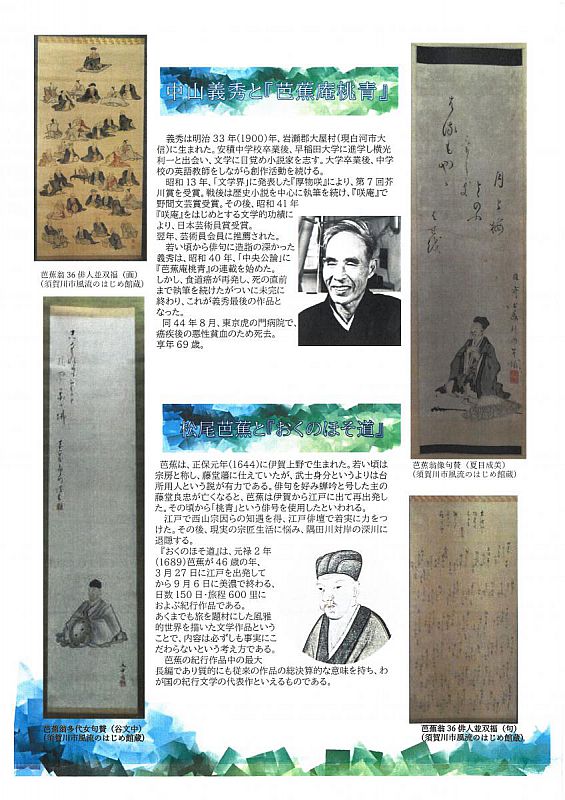 中山義秀と『芭蕉庵桃青』
義秀は明治 33 年(1900)年、岩瀬郡大屋村(現白河市大
信)に生まれた。安積中学校卒業後、早稲田大学に進学し横光
利一と出会い、文学に目覚め小説家を志す。大学卒業後、中学
校の英語教師をしながら創作活動を続ける。
昭和 13 年、「文学界」に発表した『厚物咲』により、第 7 回芥
川賞を受賞。戦後は歴史小説を中心に執筆を続け、『咲庵』で
野間文芸賞受賞。その後、昭和 41 年
『咲庵』をはじめとする文学的功績に
より、日本芸術院賞受賞。
翌年、芸術員会員に推薦された。
若い頃から俳句に造詣の深かった
義秀は、昭和 40 年、「中央公論」に
『芭蕉庵桃青』の連載を始めた。
しかし、食道癌が再発し、死の直前
まで執筆を続けたがついに未完に
終わり、これが義秀最後の作品と
なった。
同 44 年 8 月、東京虎の門病院で、
癌疾後の悪性貧血のため死去。
享年 69 歳。
芭蕉翁 36 俳人並双福（画）
(須賀川市風流のはじめ館蔵)
松尾芭蕉と『おくのほそ道』
芭蕉は、正保元年(1644)に伊賀上野で生まれた。若い頃は
宗房と称し、藤堂藩に仕えていたが、武士身分というよりは台
所用人という説が有力である。俳句を好み蝉吟と号した主の
藤堂良忠が亡くなると、芭蕉は伊賀から江戸に出て再出発し
た。その頃から「桃青」という俳号を使用したといわれる。
江戸で西山宗因らの知遇を得、江戸俳壇で着実に力をつ
けた。その後、現実の宗匠生活に悩み、隅田川対岸の深川に
退隠する。
『おくのほそ道』は、元禄 2 年
(1689)芭蕉が 46 歳の年、
3 月 27 日に江戸を出発して
から 9 月 6 日に美濃で終わる、
日数 150 日・旅程 600 里に
およぶ紀行作品である。
あくまでも旅を題材にした風雅
的世界を描いた文学作品という
ことで、内容は必ずしも事実にこ
だわらないという考え方である。
芭蕉の紀行作品中の最大
長編であり質的にも従来の作品の総決算的な意味を持ち、わ
が国の紀行文学の代表作といえるものである。
芭蕉翁像句賛（夏目成美）
(須賀川市風流のはじめ館蔵)
芭蕉翁多代女句賛（谷文中）
(須賀川市風流のはじめ館蔵)
芭蕉翁 36 俳人並双福（句）
(須賀川市風流のはじめ館蔵)